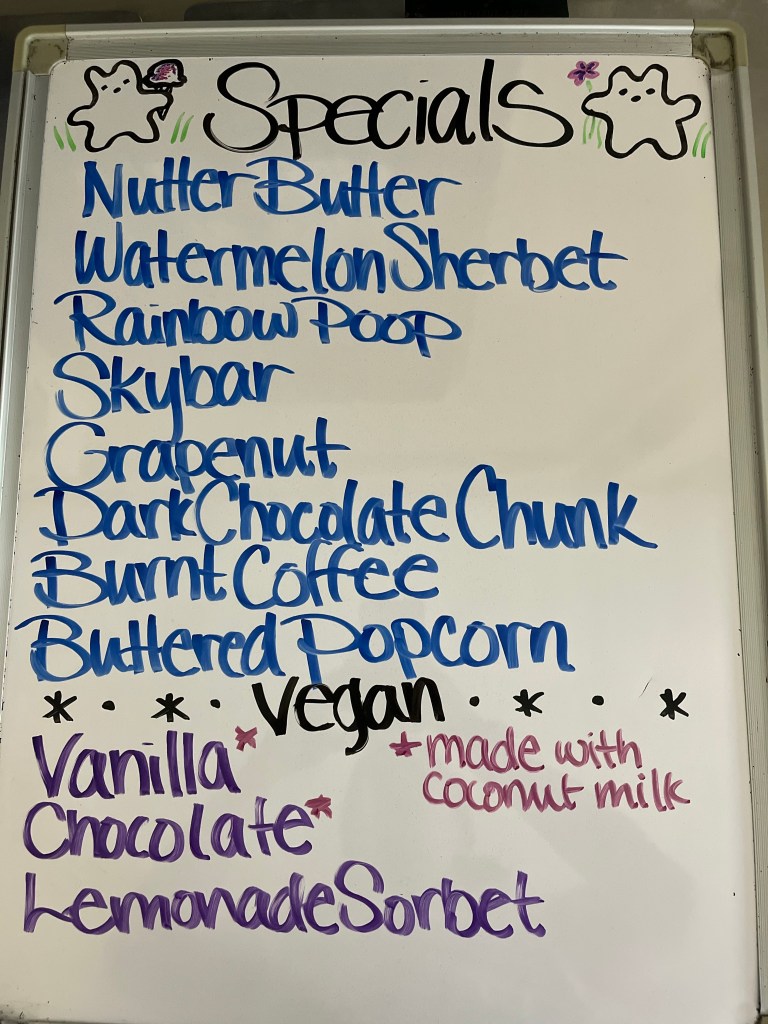 Specials
Nutter Butter
Watermelon Sherbet
Rainbow Poop
Skybar
Grapenut
Dark Chocolate Chunk
Burnt Coffee
Buttered Popcorn
* · * · Vegan · * · *
Vanilla* *made with
coconut milk
Chocolate*
Lemonade Sorbet